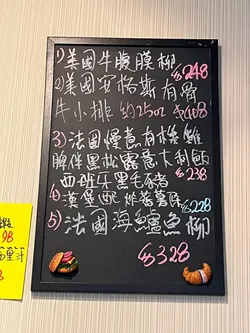 1) 美國牛腹膜柳 $248
2) 美國安格斯有骨
牛小排 約25oz $408
3) 法國慢煮有格雞
脾伴黑松露意大利飯
$238
西班牙黑毛豬
4) 漢堡配拼薯條 $228
5) 法國海鱸魚柳
$328
98